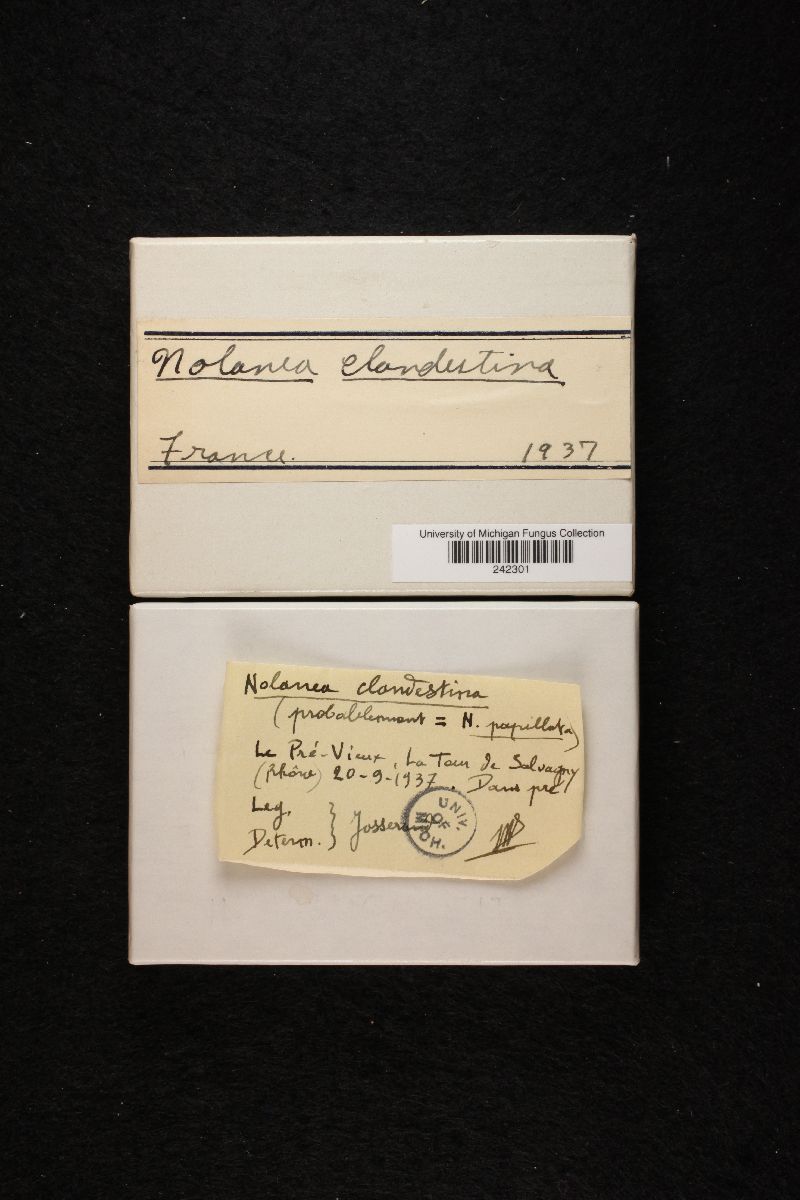 Nolanea clandestina
France. 1937
University of Michigan Fungus Collection
242301
Nolanea clandestina
(probablement = N. papillata)
Le Pré-Vieux, La Tour de Salvagny
(Rhône) 20-9-1937. Dans pré
Leg.
Determ. } Josserand
UNIV. OF MICH.